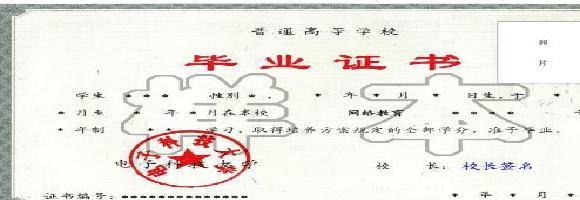 普通高等学校
毕业证书
照
片
学生 *** 性别 *, * 年 * 月 * 日生,于 *
* 月至 * 年 * 月在本校 网络教育 ****
* 年制 *** 学习,取得培养方案规定的全部学分,准予毕业。
电子科技大学 校 长: 校长签名
证书编号:**************** * 年 * 月
样本